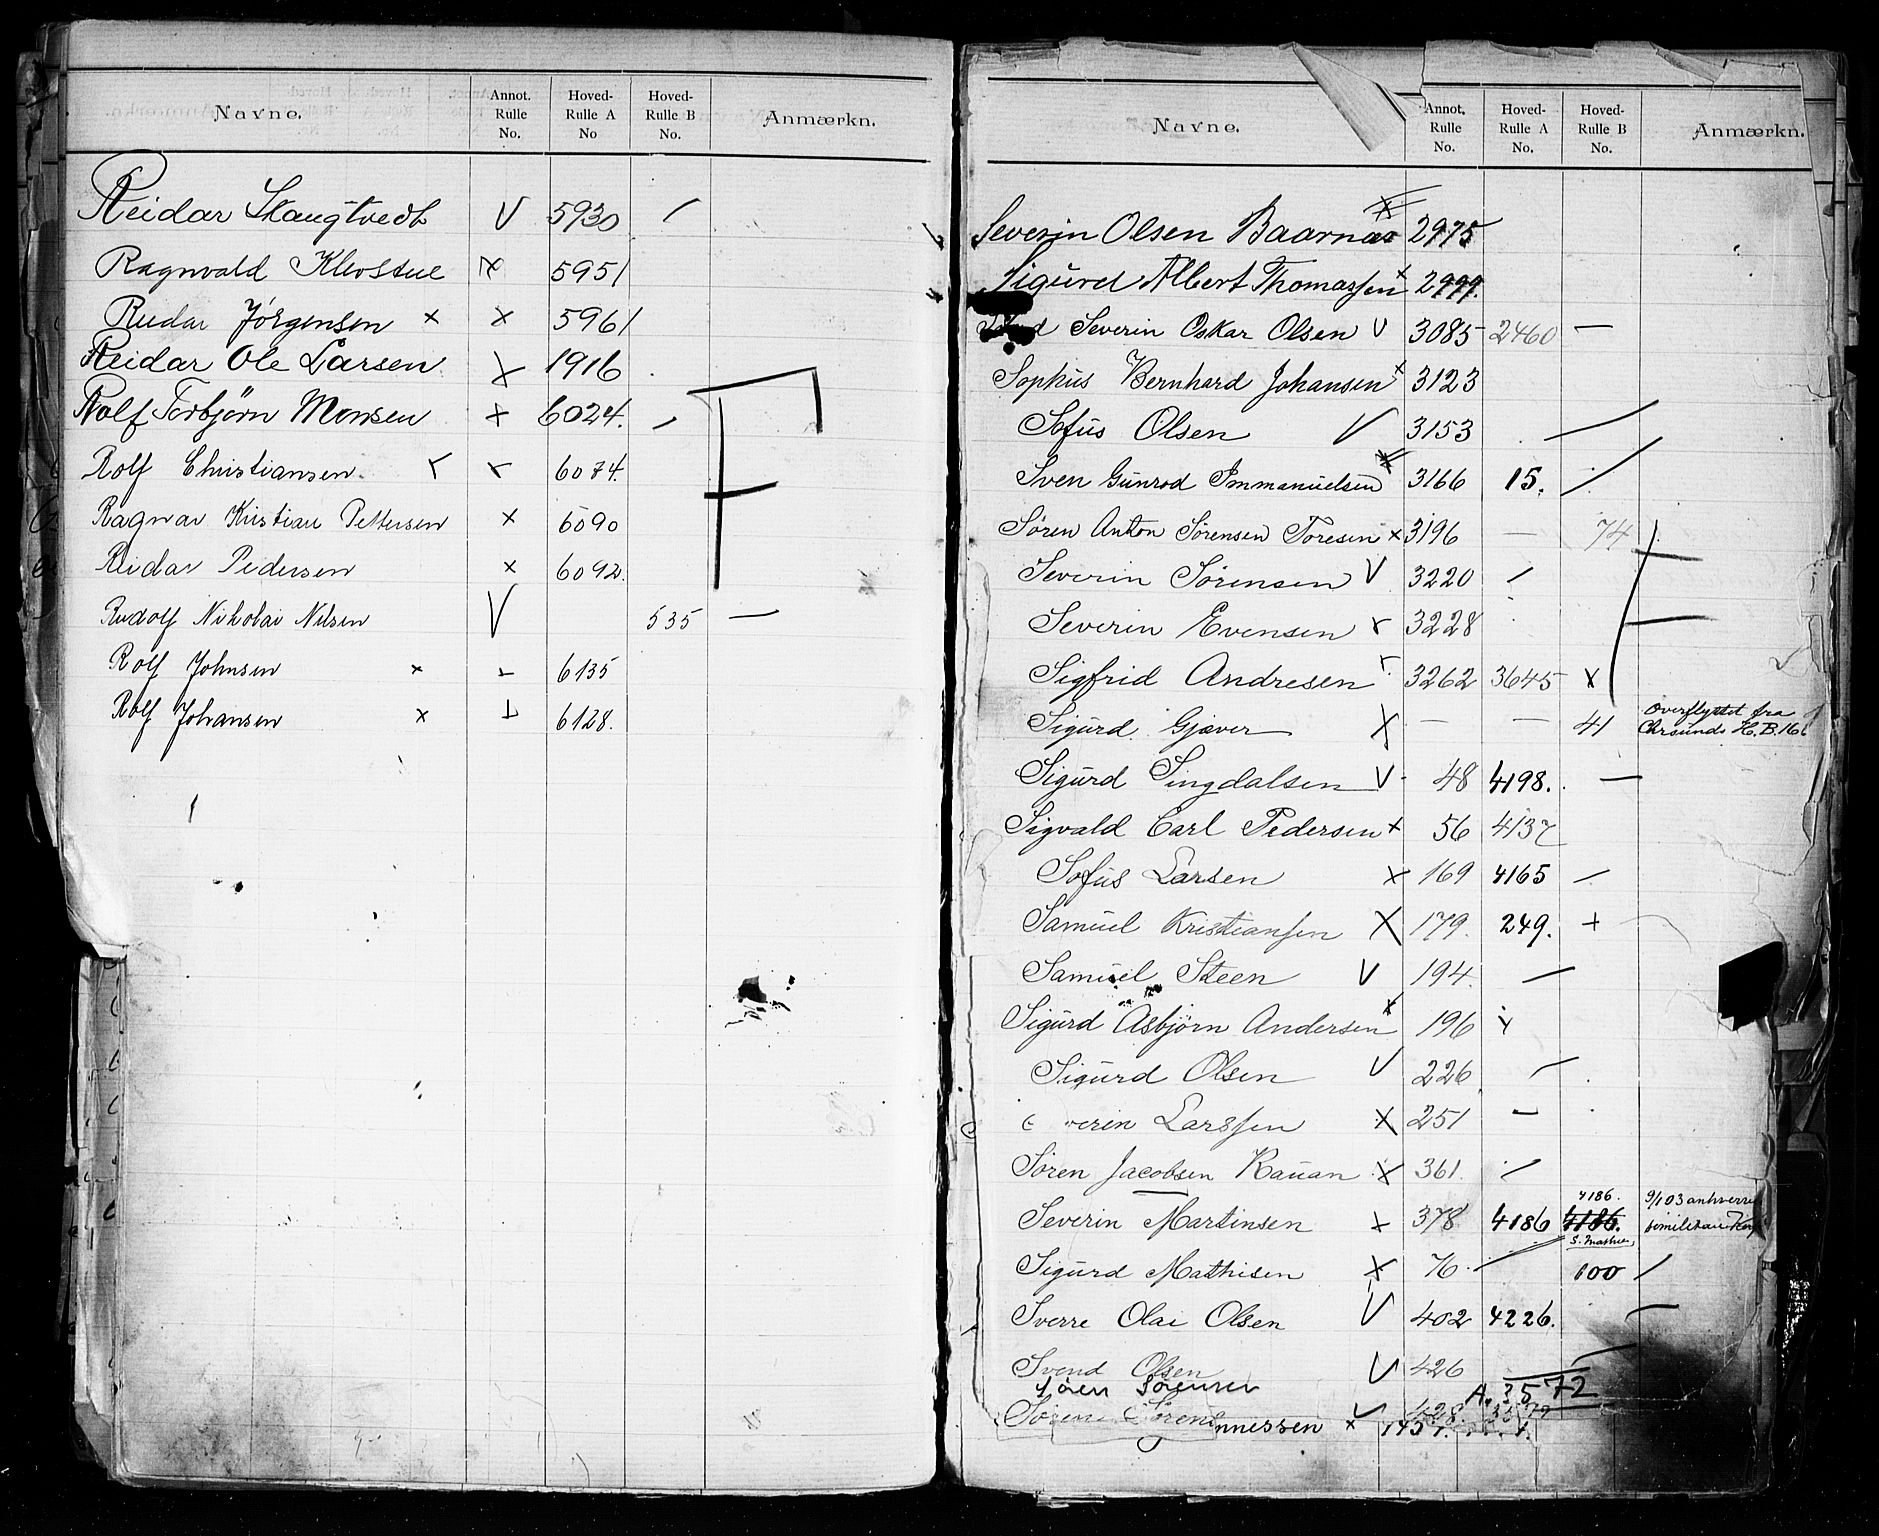 Navne. Annot. Rulle No. Hoved-Rulle A No Hoved-Rulle B No. Anmærkn.
Reidar Skaugtvedt V 5930 —
Ragnvald Klovstue x 5951
Reidar Jörgensen x x 5961
Reidar Ole Larsen x 1916
Rolf Torbjörn Monsen x 6024. —
Rolf Christiansen x x 6074.
Ragnar Kristian Pettersen x 6090
Reidar Pedersen x 6092.
Rudolf Nikolai Nilsen V 535 —
Rolf Johnsen x 6135
Rolf Johansen x 6128.
Navne. Annot. Rulle No. Hoved-Rulle A No. Hoved-Rulle B No. Anmærkn.
Severin Olsen Baarnæs x 2975
Sigurd Albert Thomassen x 2999.
Severin Oskar Olsen V 3085 2460 —
Sophus Bernhard Johansen x 3123
Sofus Olsen V 3153 —
Sven Gunrod Immanuelsen x 3166 15. —
Sören Anton Sörensen Toresen x 3196 — 74
Severin Sörensen V 3220 —
Severin Evensen x 3228
Sigfrid Andresen x 3262 3645 x
Sigurd Gjæver x — — 41 Overflyttet fra
Chrsunds H.B.16
Sigurd Singdalsen V 48 4198. —
Sigvald Carl Pedersen x 56 4137
Sofus Larsen x 169 4165 —
Samuel Kristiansen x 179. 249. +
Samuel Steen V 194. —
Sigurd Asbjørn Andersen x 196 x
Sigurd Olsen V 226 —
verin Larssen x 251 —
Sören Jacobsen Rauan x 361. —
4186. 9/1 03
Severin Martinsen x 378 4186 4186.
S. Mathis.
Sigurd Mathisen x 76. — 100 —
Sverre Olai Olsen V 402 4226. —
Svend Olsen V 426 —
Sören Sörensen A. 3572
Sören Sören V 428.
nnessen x